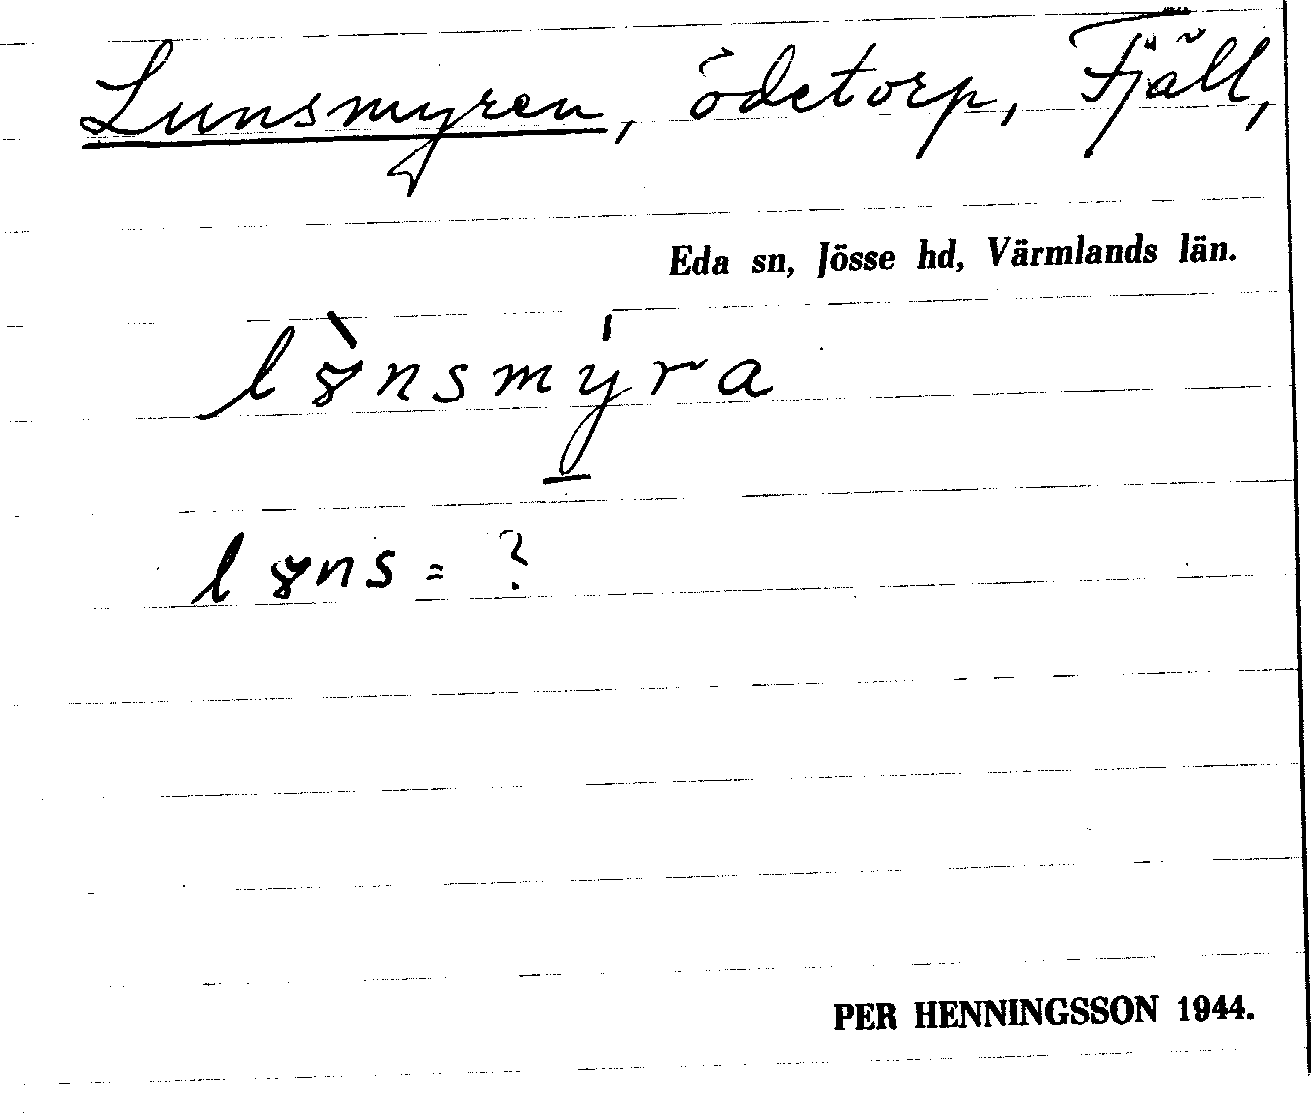 Lunsmyren, ödetorp, Fjäll,
Eda sn, Jösse hd, Värmlands län.
lø̀nsmýra
løns = ?
PER HENNINGSSON 1944.